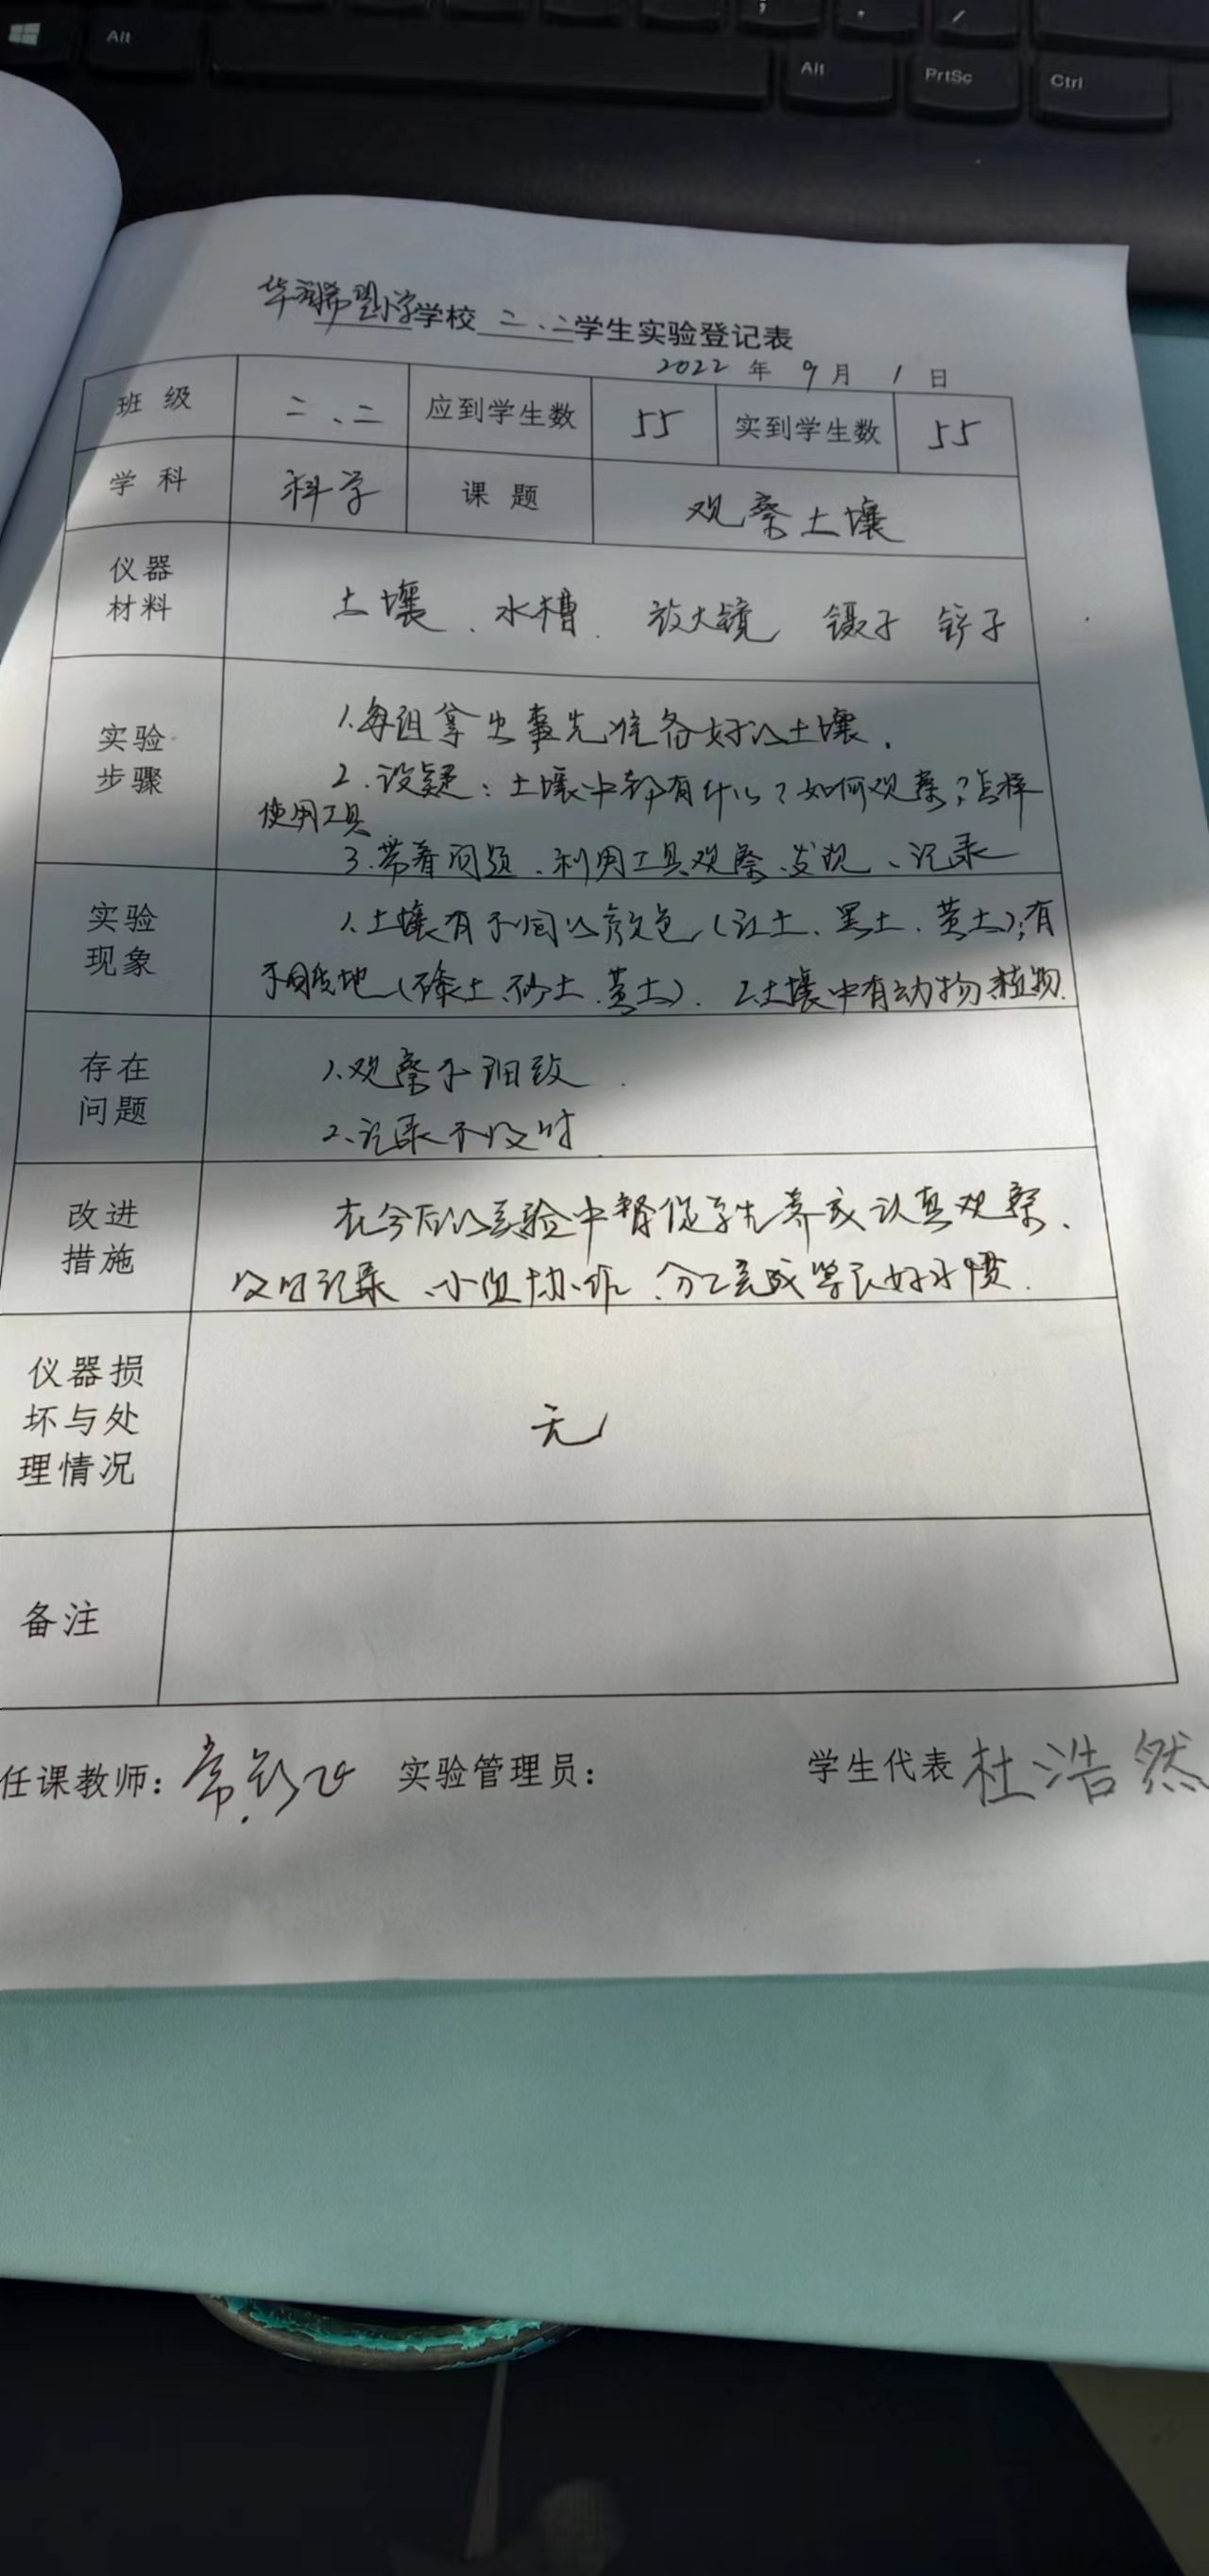 Alt
Alt PrtSc Ctrl
华润希望小学学校 二、二学生实验登记表
2022 年 9 月 1 日
班 级 二、二 应到学生数 55 实到学生数 55
学 科 科学 课 题 观察土壤
仪器
材料
土壤、水槽、放大镜 镊子 铲子
实验
步骤
1.每组拿出事先准备好的土壤.
2.设疑:土壤中都有什么?如何观察?怎样
使用工具
3.带着问题、利用工具观察、发现、记录
实验
现象
1.土壤有不同的颜色(红土、黑土、黄土);有
不同质地( 土、砂土、黄土). 2.土壤中有动物、植物.
存在
问题
1.观察不细致.
2.记录不及时
改进
措施
在今后的实验中督促学生养成认真观察、
及时记录、小组协作、分工完成等良好习惯.
仪器损
坏与处
理情况
无
备注
任课教师: 常 实验管理员: 学生代表 杜浩然